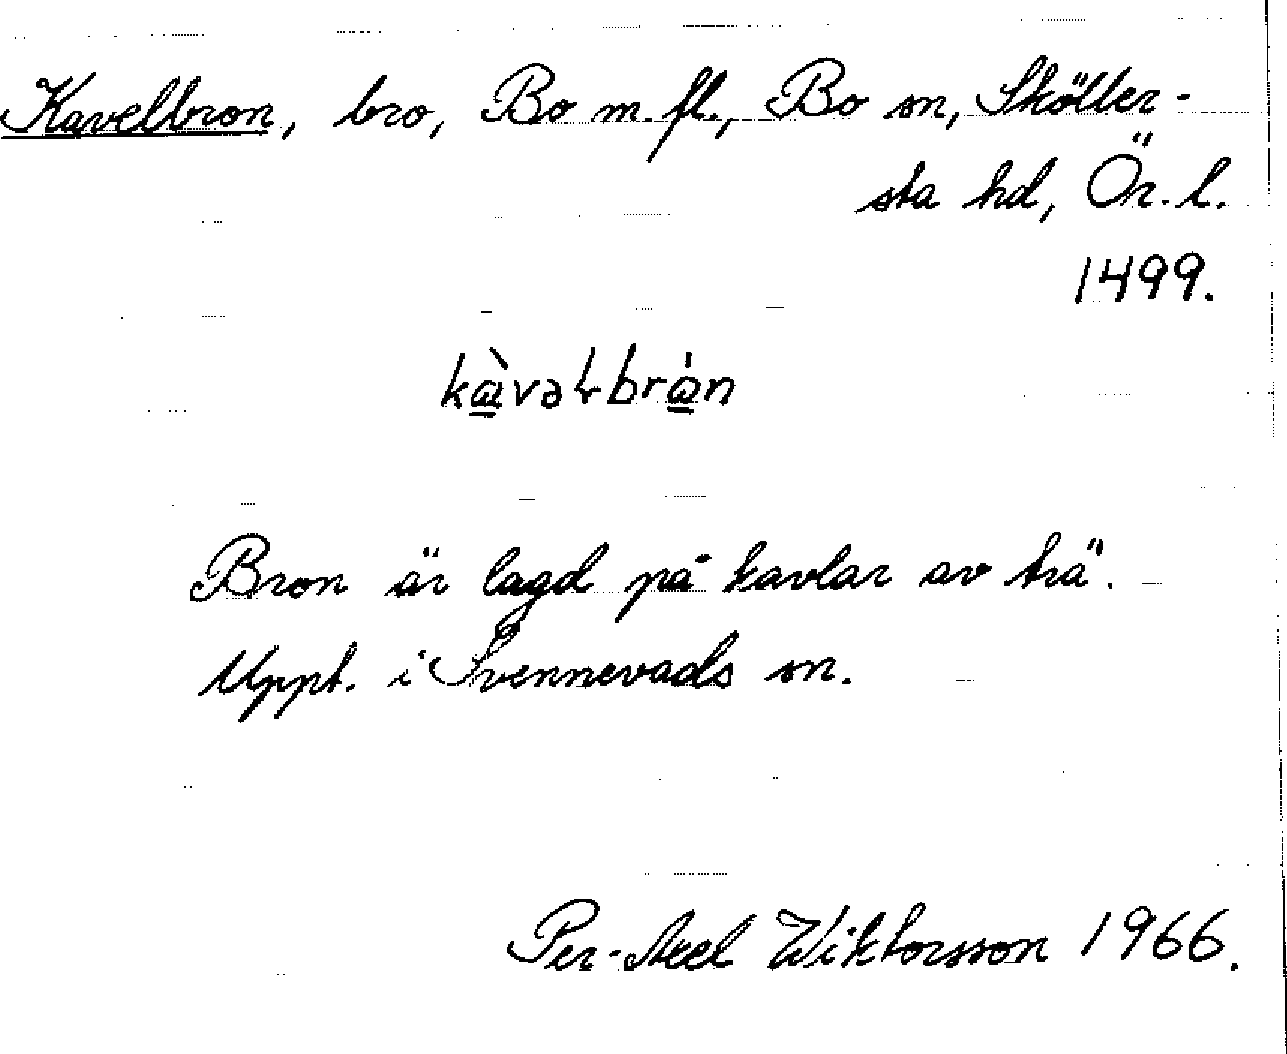 Kavelbron, bro, Bo m.fl., Bo sn, Sköller-
sta hd, Ör.l.
1499.
Bron är lagd på kavlar av trä.
Uppt. i Svennevads sn.
Per-Axel Wiktorsson 1966.